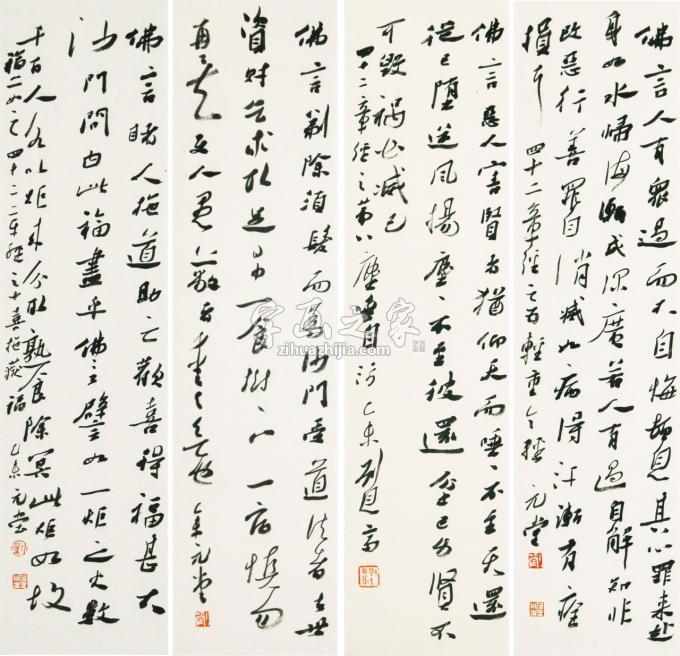 佛言人有衆過而不自悔頓息其心罪來赴
身如水歸海漸成深廣若人有過自解知非
改惡行善罪自消滅如病得汗漸有痊
損耳 四十二章經之五輕重令轉 元堂
佛言惡人害賢者猶仰天而唾唾不至天還
從己墮逆風揚塵塵不至彼還坌己身賢不
可毀禍必滅己
四十二章經之第八塵唾自污 乙未
佛言剃除須髮而為沙門受道法者去世
資財乞求取足日中一食樹下一宿慎勿
再之矣使人愚蔽者愛與欲也 元堂
佛言睹人施道助之歡喜得福甚大
沙門問曰此福盡乎佛言譬如一炬之火數
千百人各以炬來分取熟食除冥此炬如故
福亦如之 四十二章經之十喜施獲福 乙未元堂
字画之家
zihuazhijia.com